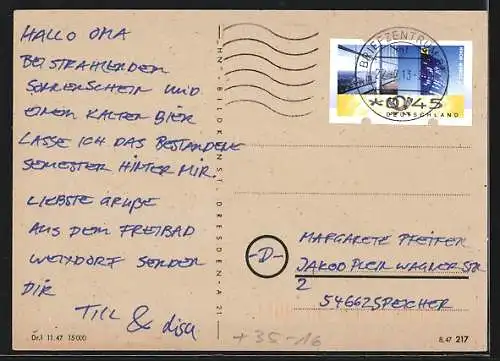 HALLO OMA
BEI STRAHLENDEM
SONNENSCHEIN UND
EINEM KALTEN BIER
LASSE ICH DAS BESTANDENE
SEMESTER HINTER MIR.
LIEBSTE GRÜßE
AUS DEM FREIBAD
WEIXDORF SENDEN
DIR
TILL & Lisa
Dr.I 11.47 15000
BILDKUNST, DRESDEN-A 21
BRIEFZENTRUM
*0,45
DEUTSCHLAND
-D-
MARGARETE PFEIFER
JAKOB PLEIN WAGNER STR
2
54662 SPEICHER
+35-16
B.47 217